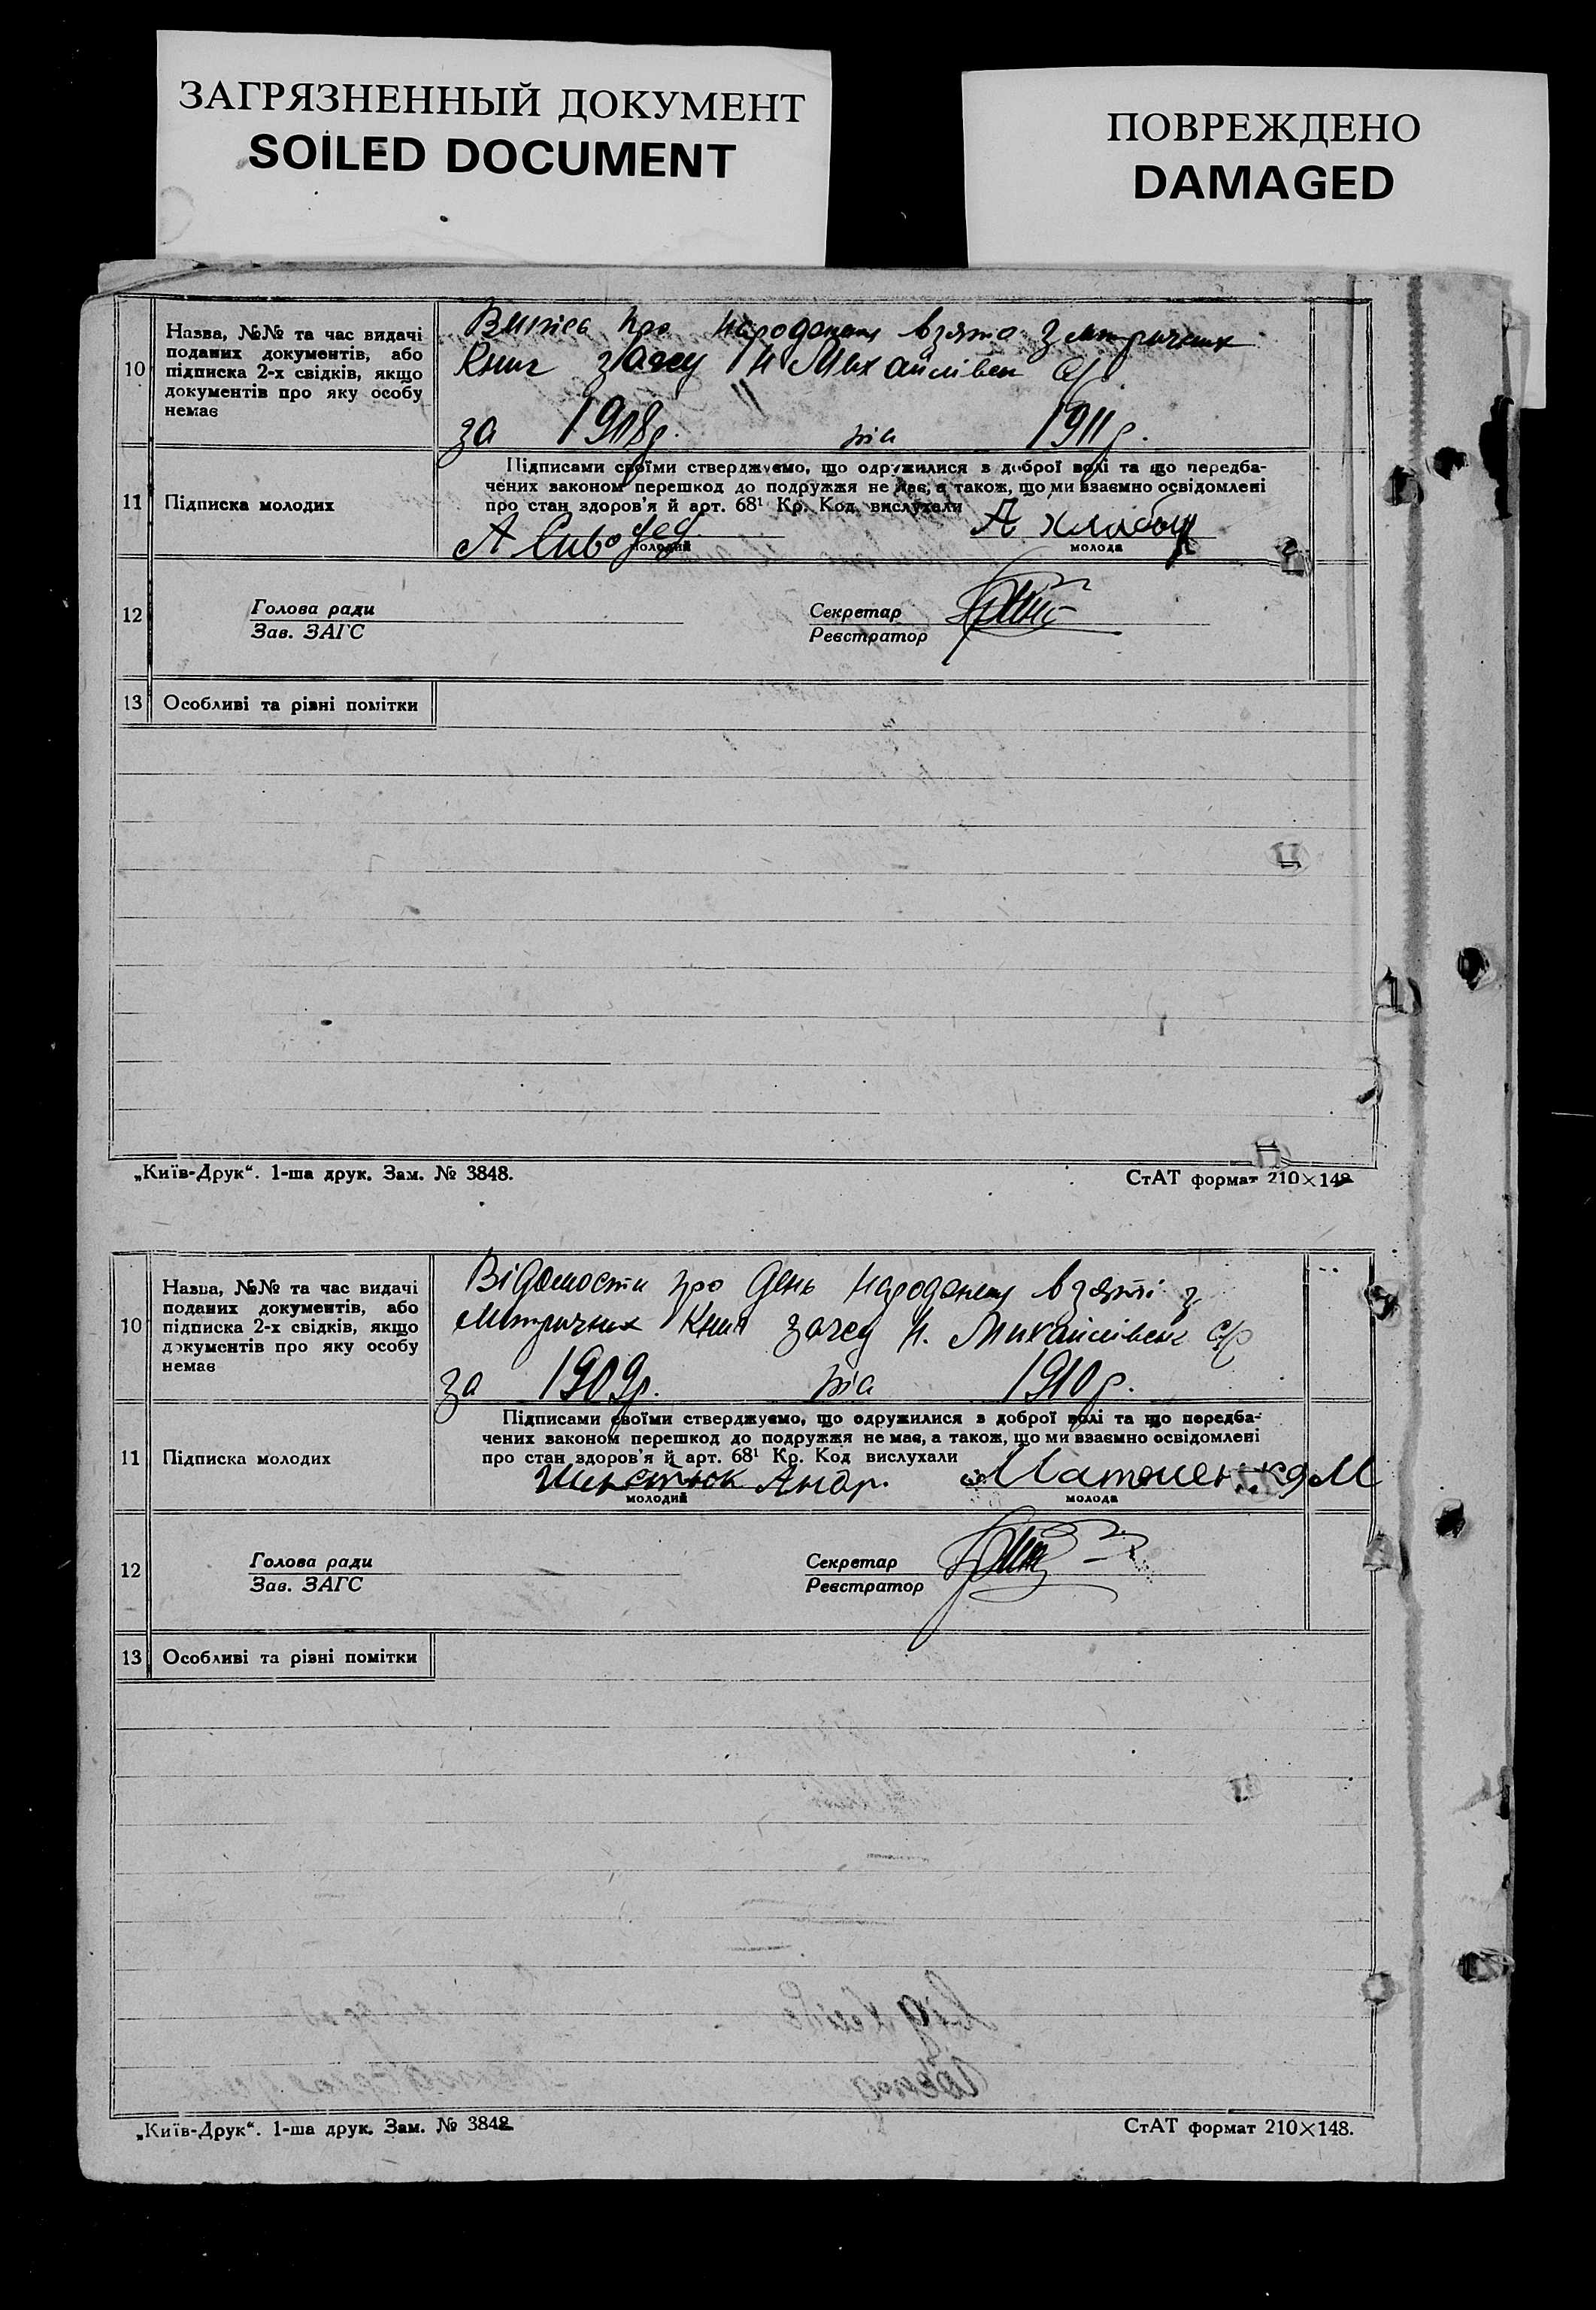 ЗАГРЯЗНЕННЫЙ ДОКУМЕНТ
SOILED DOCUMENT
ПОВРЕЖДЕНО
DAMAGED
10
Назва, №№ та час видачі
поданих документів, або
підписка 2-х свідків, якщо
документів про яку особу
немає
про взято з
Книг загсу Н Михайлівск с/р
за 1908р. та 1911р.
11
Підписка молодих
Підписами своїми стверджуємо, що одружилися з доброї волі та що передба-
чених законом перешкод до подружжя не має, а також, що ми взаємно освідомлені
про стан здоров'я й арт. 68¹ Кр. Код. вислухали
А
А
молодий
молода
12
Голова ради
Зав. ЗАГС
Секретар
Реєстратор
13
Особливі та різні помітки
„Київ-Друк“. 1-ша друк. Зам. № 3848.
СтАТ формат 210×148
10
Назва, №№ та час видачі
поданих документів, або
підписка 2-х свідків, якщо
документів про яку особу
немає
Відомости про день взяті з
Метричних Книг загсу Н. Михайлівск с/р
за 1909р. та 1910р.
11
Підписка молодих
Підписами своїми стверджуємо, що одружилися з доброї волі та що передба-
чених законом перешкод до подружжя не має, а також, що ми взаємно освідомлені
про стан здоров'я й арт. 68¹ Кр. Код вислухали
Андр.
М
молодий
молода
12
Голова ради
Зав. ЗАГС
Секретар
Реєстратор
13
Особливі та різні помітки
„Київ-Друк“. 1-ша друк. Зам. № 3848
СтАТ формат 210×148.